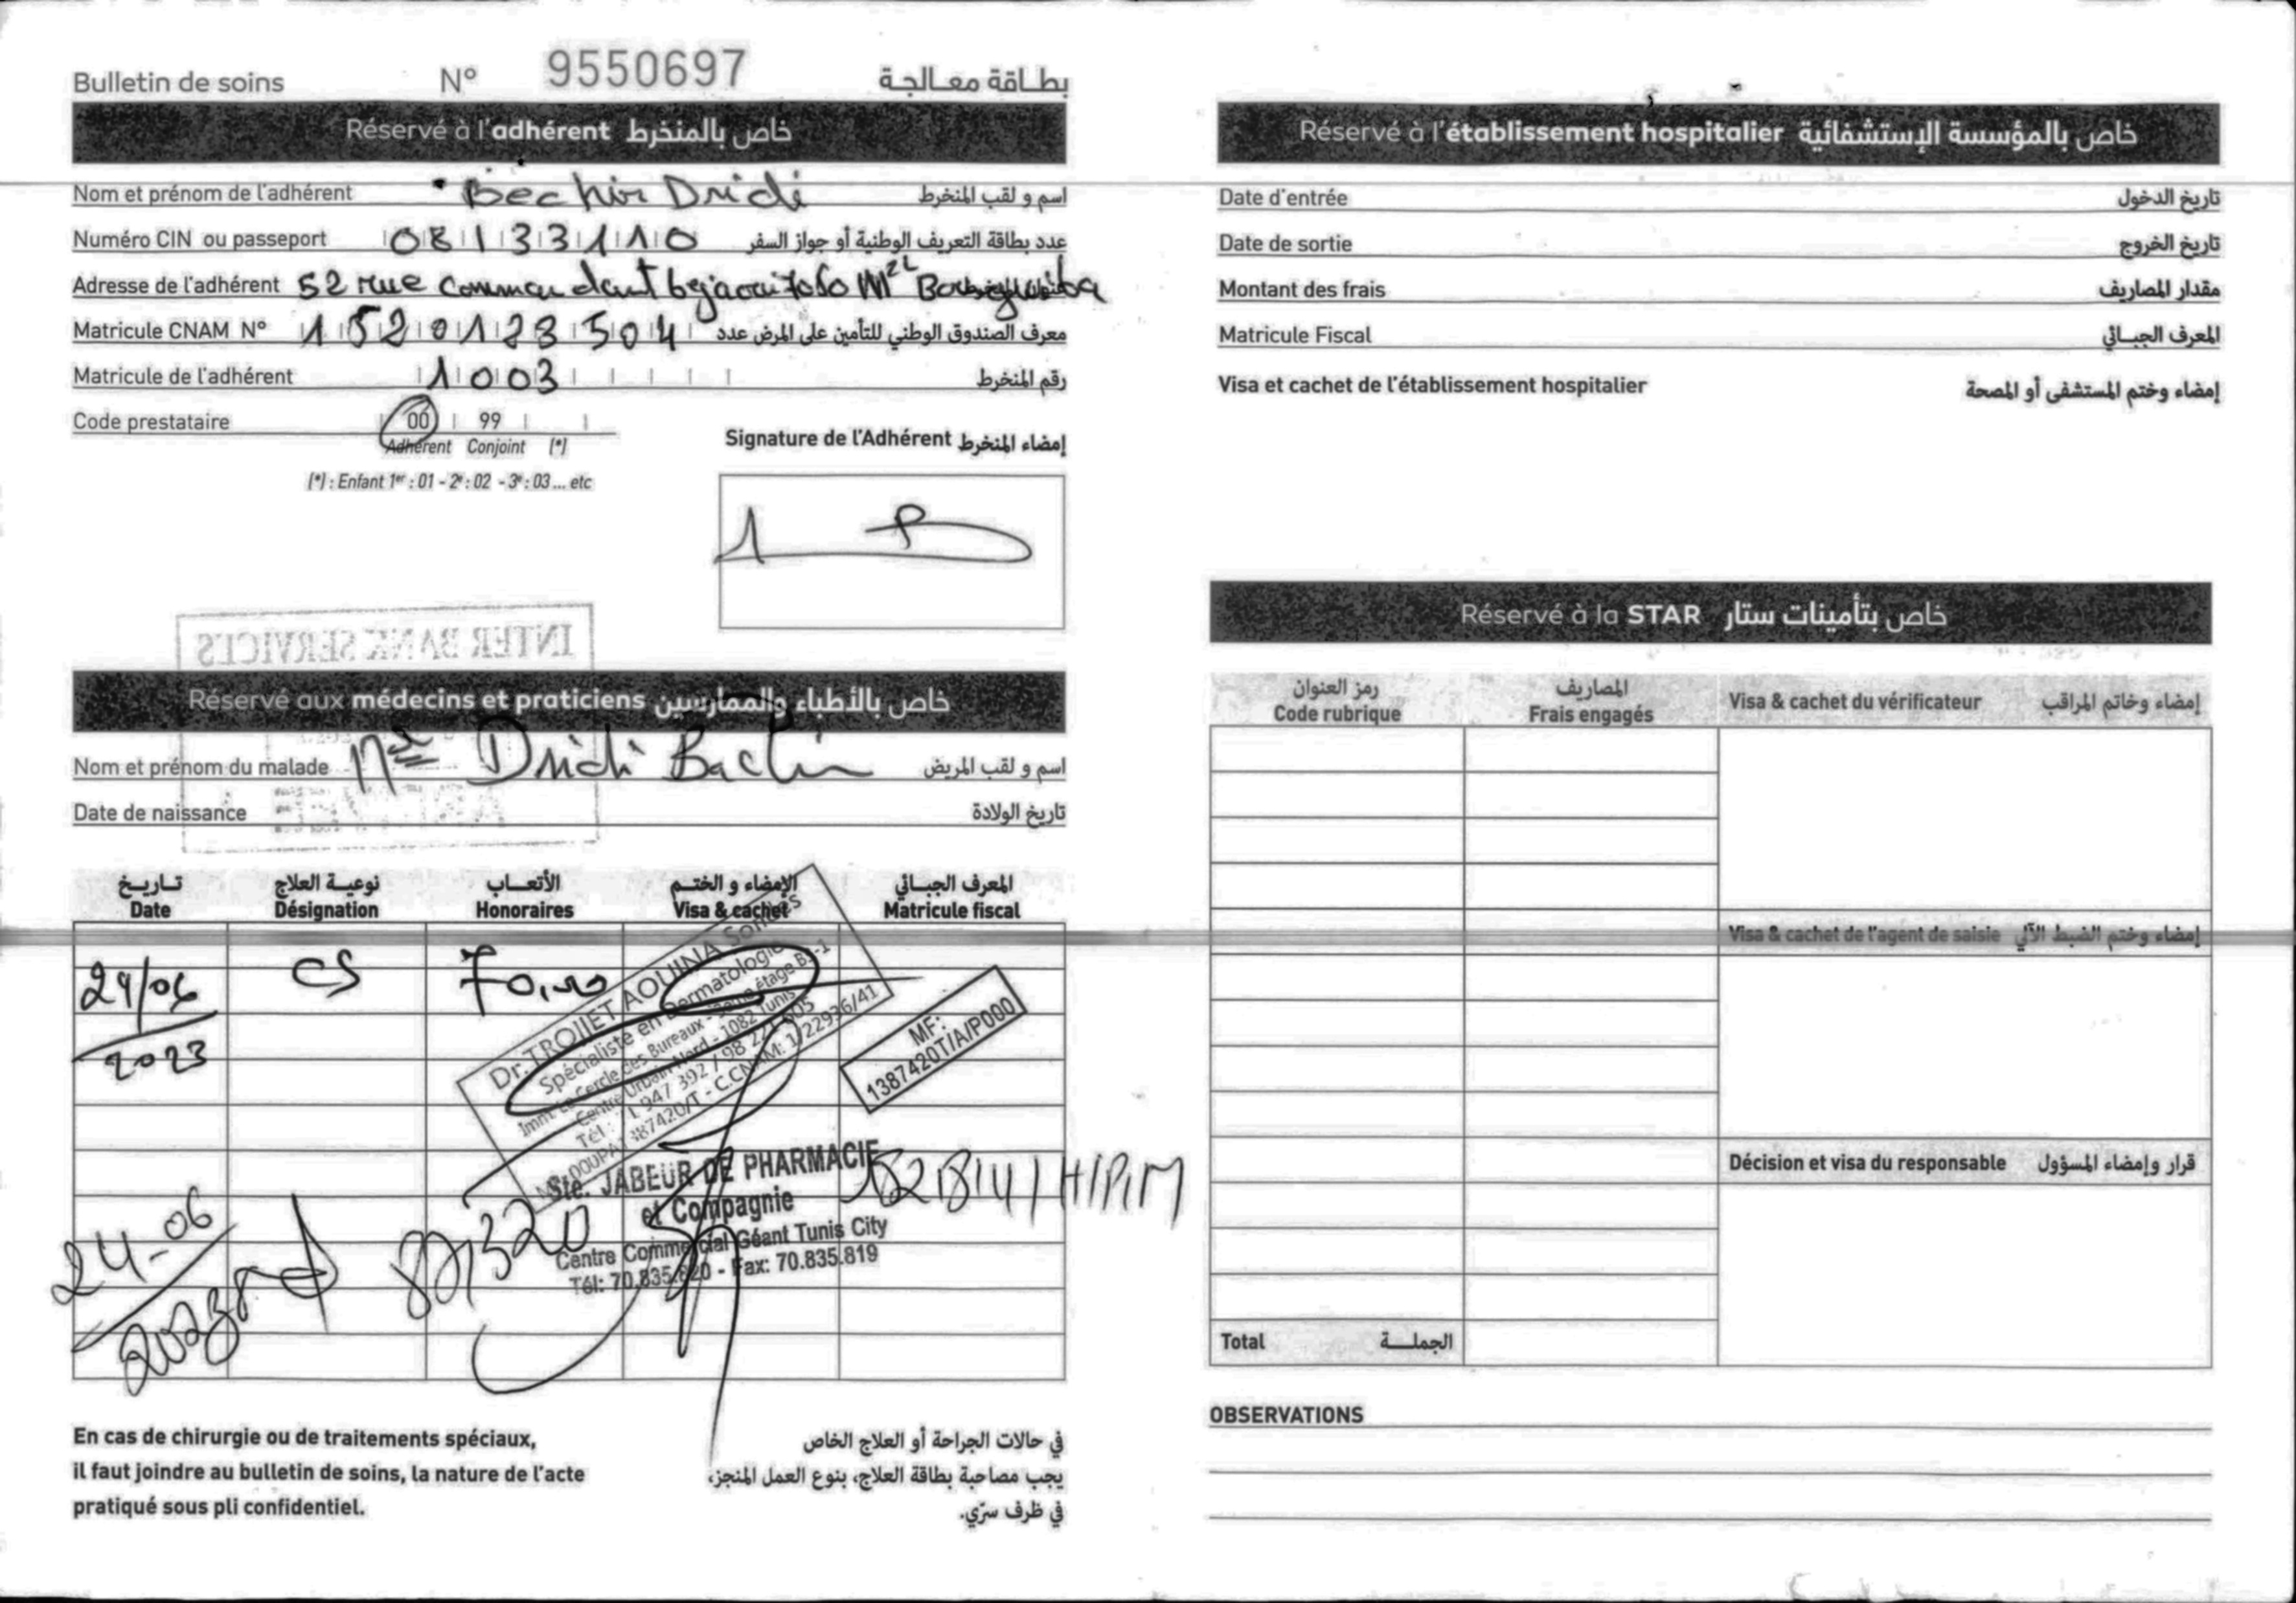 Bulletin de soins N° 9550697 بطاقة معالجة
Réservé à l'adhérent خاص بالمنخرط
Nom et prénom de l'adhérent Béchir Dridi اسم و لقب المنخرط
Numéro CIN ou passeport 08133110 عدد بطاقة التعريف الوطنية أو جواز السفر
Adresse de l'adhérent 52 rue commandant bejaoui 7050 M^el Bourguiba
Matricule CNAM N° 1520123504 معرف الصندوق الوطني للتأمين على المرض عدد
Matricule de l'adhérent 1003 رقم المنخرط
Code prestataire 00 99
Adhérent Conjoint (*)
(*) : Enfant 1er : 01 - 2e : 02 - 3e : 03 ... etc
Signature de l'Adhérent إمضاء المنخرط
INTER BANK SERVICES
Réservé aux médecins et praticiens خاص بالأطباء والممارسين
Nom et prénom du malade Dridi Bachir اسم و لقب المريض
Date de naissance تاريخ الولادة
تـاريـخ نوعيـة العلاج الأتعـاب الإمضاء و الختـم المعرف الجبـائي
Date Désignation Honoraires Visa & cachet Matricule fiscal
24/06 2023 CS
Dr. TROJJET AOUINA Sondes
Spécialiste en Dermatologie
Imm. Le Cercle des Bureaux - étage B3-1
Centre Urbain Nord - 1082 Tunis
MF:
1387420T/A/P000
Sté. JABEUR DE PHARMACIE
et Compagnie
Centre Commercial Géant Tunis City
Tél: 70.835.820 - Fax: 70.835.819
24-06
2023
En cas de chirurgie ou de traitements spéciaux,
il faut joindre au bulletin de soins, la nature de l'acte
pratiqué sous pli confidentiel.
في حالات الجراحة أو العلاج الخاص
يجب مصاحبة بطاقة العلاج، بنوع العمل المنجز،
في ظرف سرّي.
Réservé à l'établissement hospitalier خاص بالمؤسسة الإستشفائية
Date d'entrée تاريخ الدخول
Date de sortie تاريخ الخروج
Montant des frais مقدار المصاريف
Matricule Fiscal المعرف الجبـائي
Visa et cachet de l'établissement hospitalier إمضاء وختم المستشفى أو المصحة
Réservé à la STAR خاص بتأمينات ستار
رمز العنوان المصاريف
Code rubrique Frais engagés Visa & cachet du vérificateur إمضاء وخاتم المراقب
Visa & cachet de l'agent de saisie إمضاء وختم الضبط الآلي
Décision et visa du responsable قرار وإمضاء المسؤول
Total الجملـــة
OBSERVATIONS